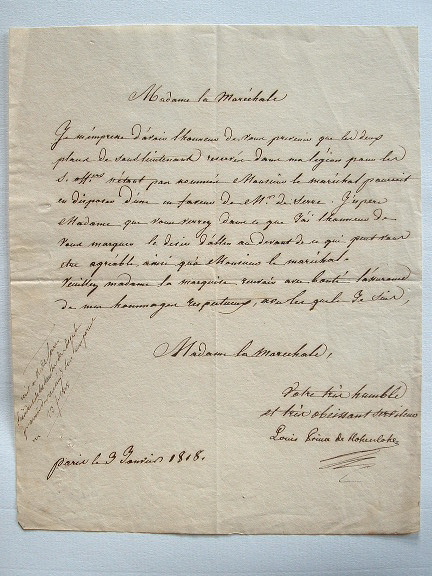 Madame la Maréchale
Je m'empresse d'avoir l'honneur de vous prevenir que les deux
places de Souslieutenant reservée dans ma légion pour les
S. off.ers n'étant pas nommée Monsieur le maréchal pourroit
en disposer d'une en faveur de M.r de Serre. J'espere
Madame que vous verrez dans ce que j'ai l'honneur de
vous marquer le désir d'aller au devant de ce qui peut vous
etre agréable ainsi que Monsieur le maréchal.
Veuillez madame la marquise recevoir avec bonté l'assurance
de mes hommages respectueux, avec lesquels Je suis,
Madame la Marechale,
Votre très humble
et très obeissant serviteur
Louis Prince de Hohenlohe
paris le 3 Janvier 1818.